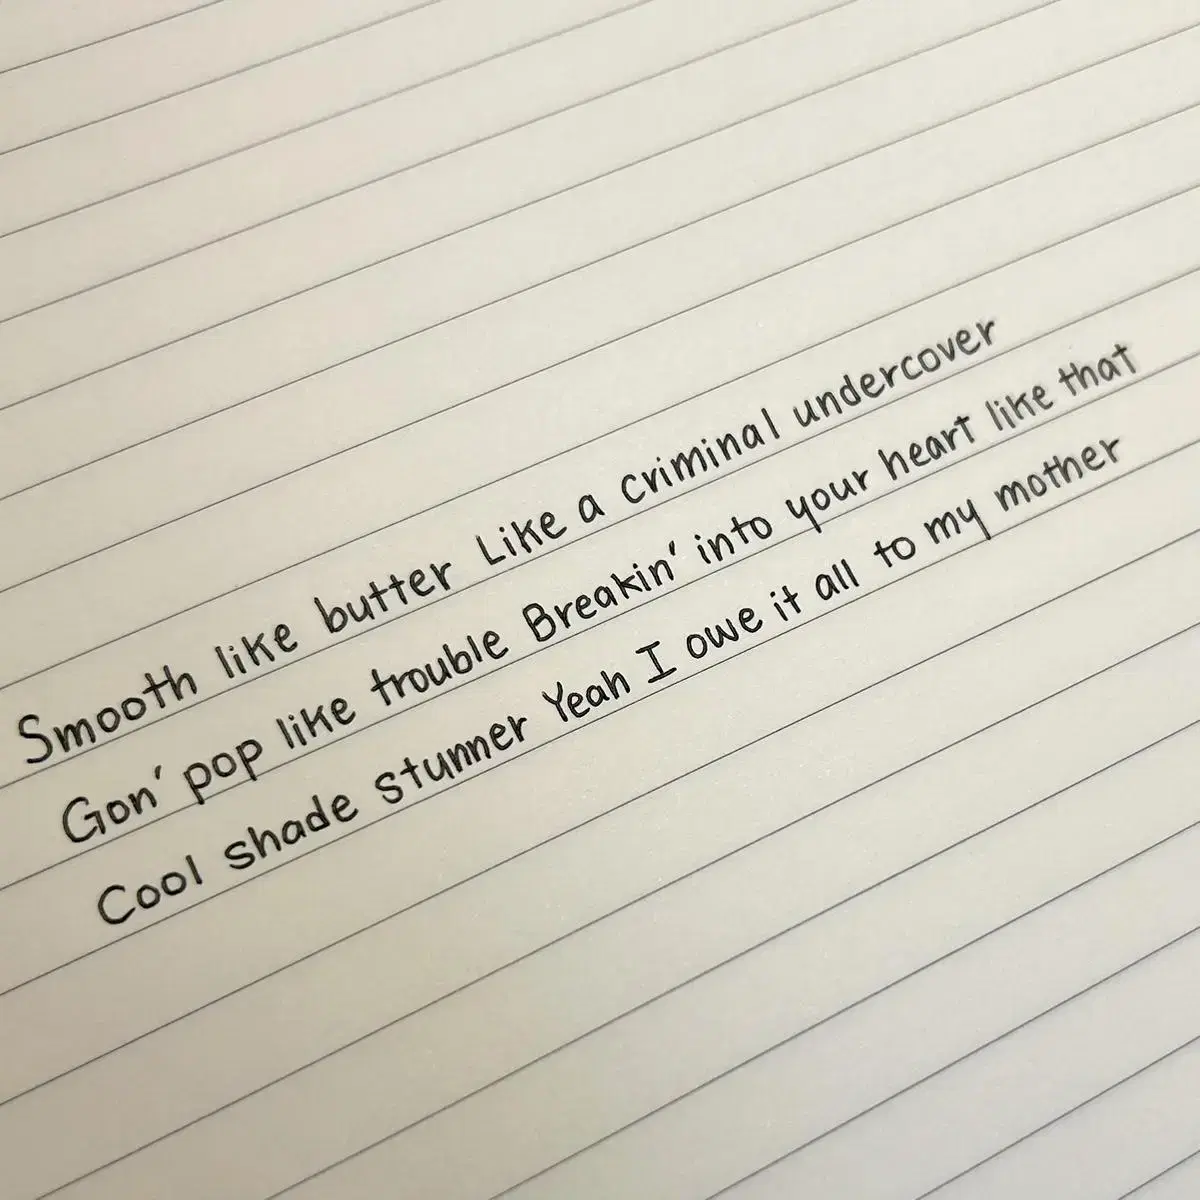 Smooth like butter Like a criminal undercover
Gon' pop like trouble Breakin' into your heart like that
Cool shade stunner Yeah I owe it all to my mother